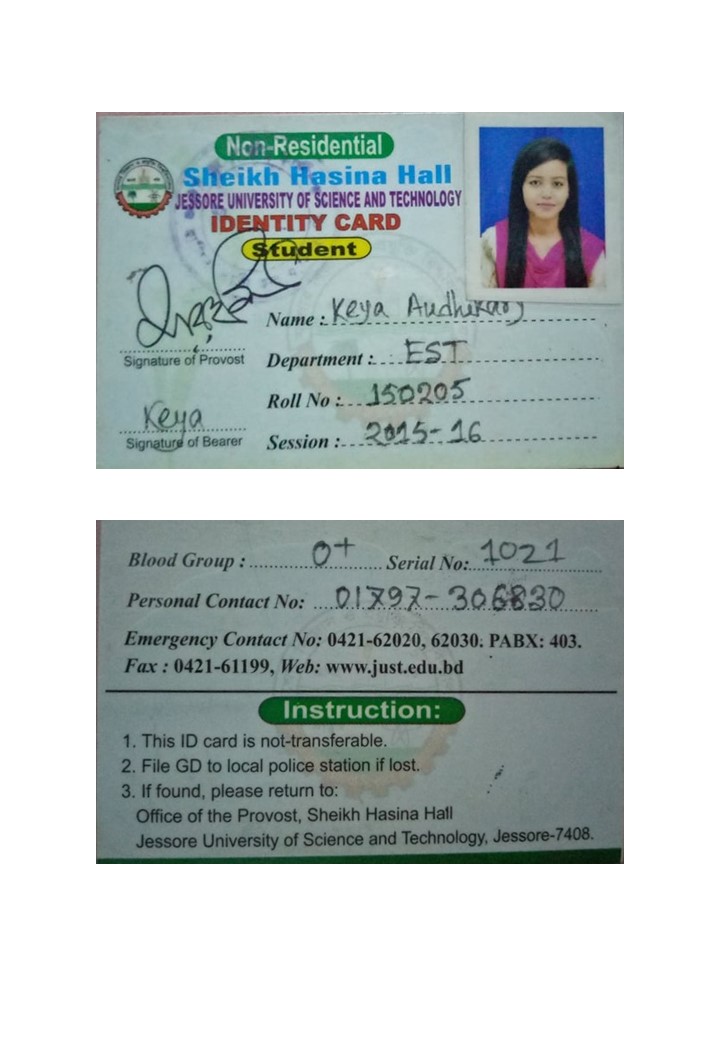 Non-Residential
Sheikh Hasina Hall
JESSORE UNIVERSITY OF SCIENCE AND TECHNOLOGY
IDENTITY CARD
Student
Name : Keya Audhikary
Signature of Provost
Department : EST
Roll No : 150205
Keya
Signature of Bearer
Session : 2015-16
Blood Group : O+ Serial No: 1021
Personal Contact No: 01797-306830
Emergency Contact No: 0421-62020, 62030. PABX: 403.
Fax : 0421-61199, Web: www.just.edu.bd
Instruction:
1. This ID card is not-transferable.
2. File GD to local police station if lost.
3. If found, please return to:
Office of the Provost, Sheikh Hasina Hall
Jessore University of Science and Technology, Jessore-7408.